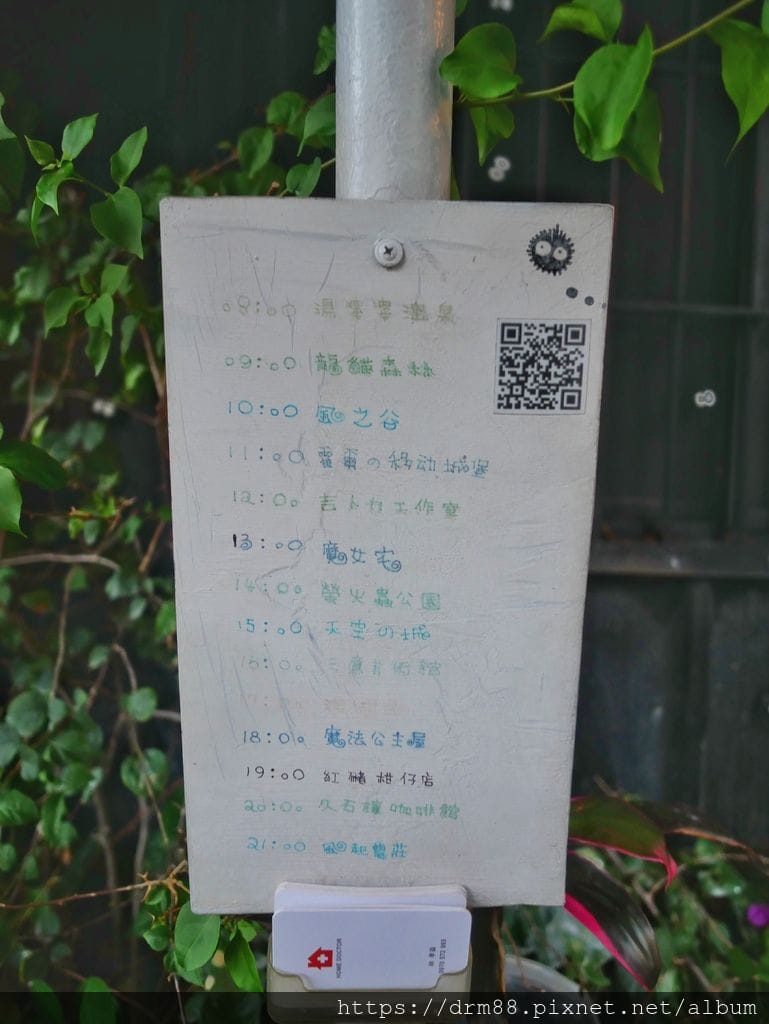 08:00 湯婆婆溫泉
09:00 龍貓森林
10:00 風之谷
11:00 霍爾の移动城堡
12:00 吉卜力工作室
13:00 魔女宅
14:00 螢火蟲公園
15:00 天空の城
16:00 三鷹美術館
18:00 魔法公主屋
19:00 紅豬柑仔店
20:00 久石讓咖啡館
21:00 風起農莊
HOME DOCTOR
0970 572 983
https://drm88.pixnet.net/album